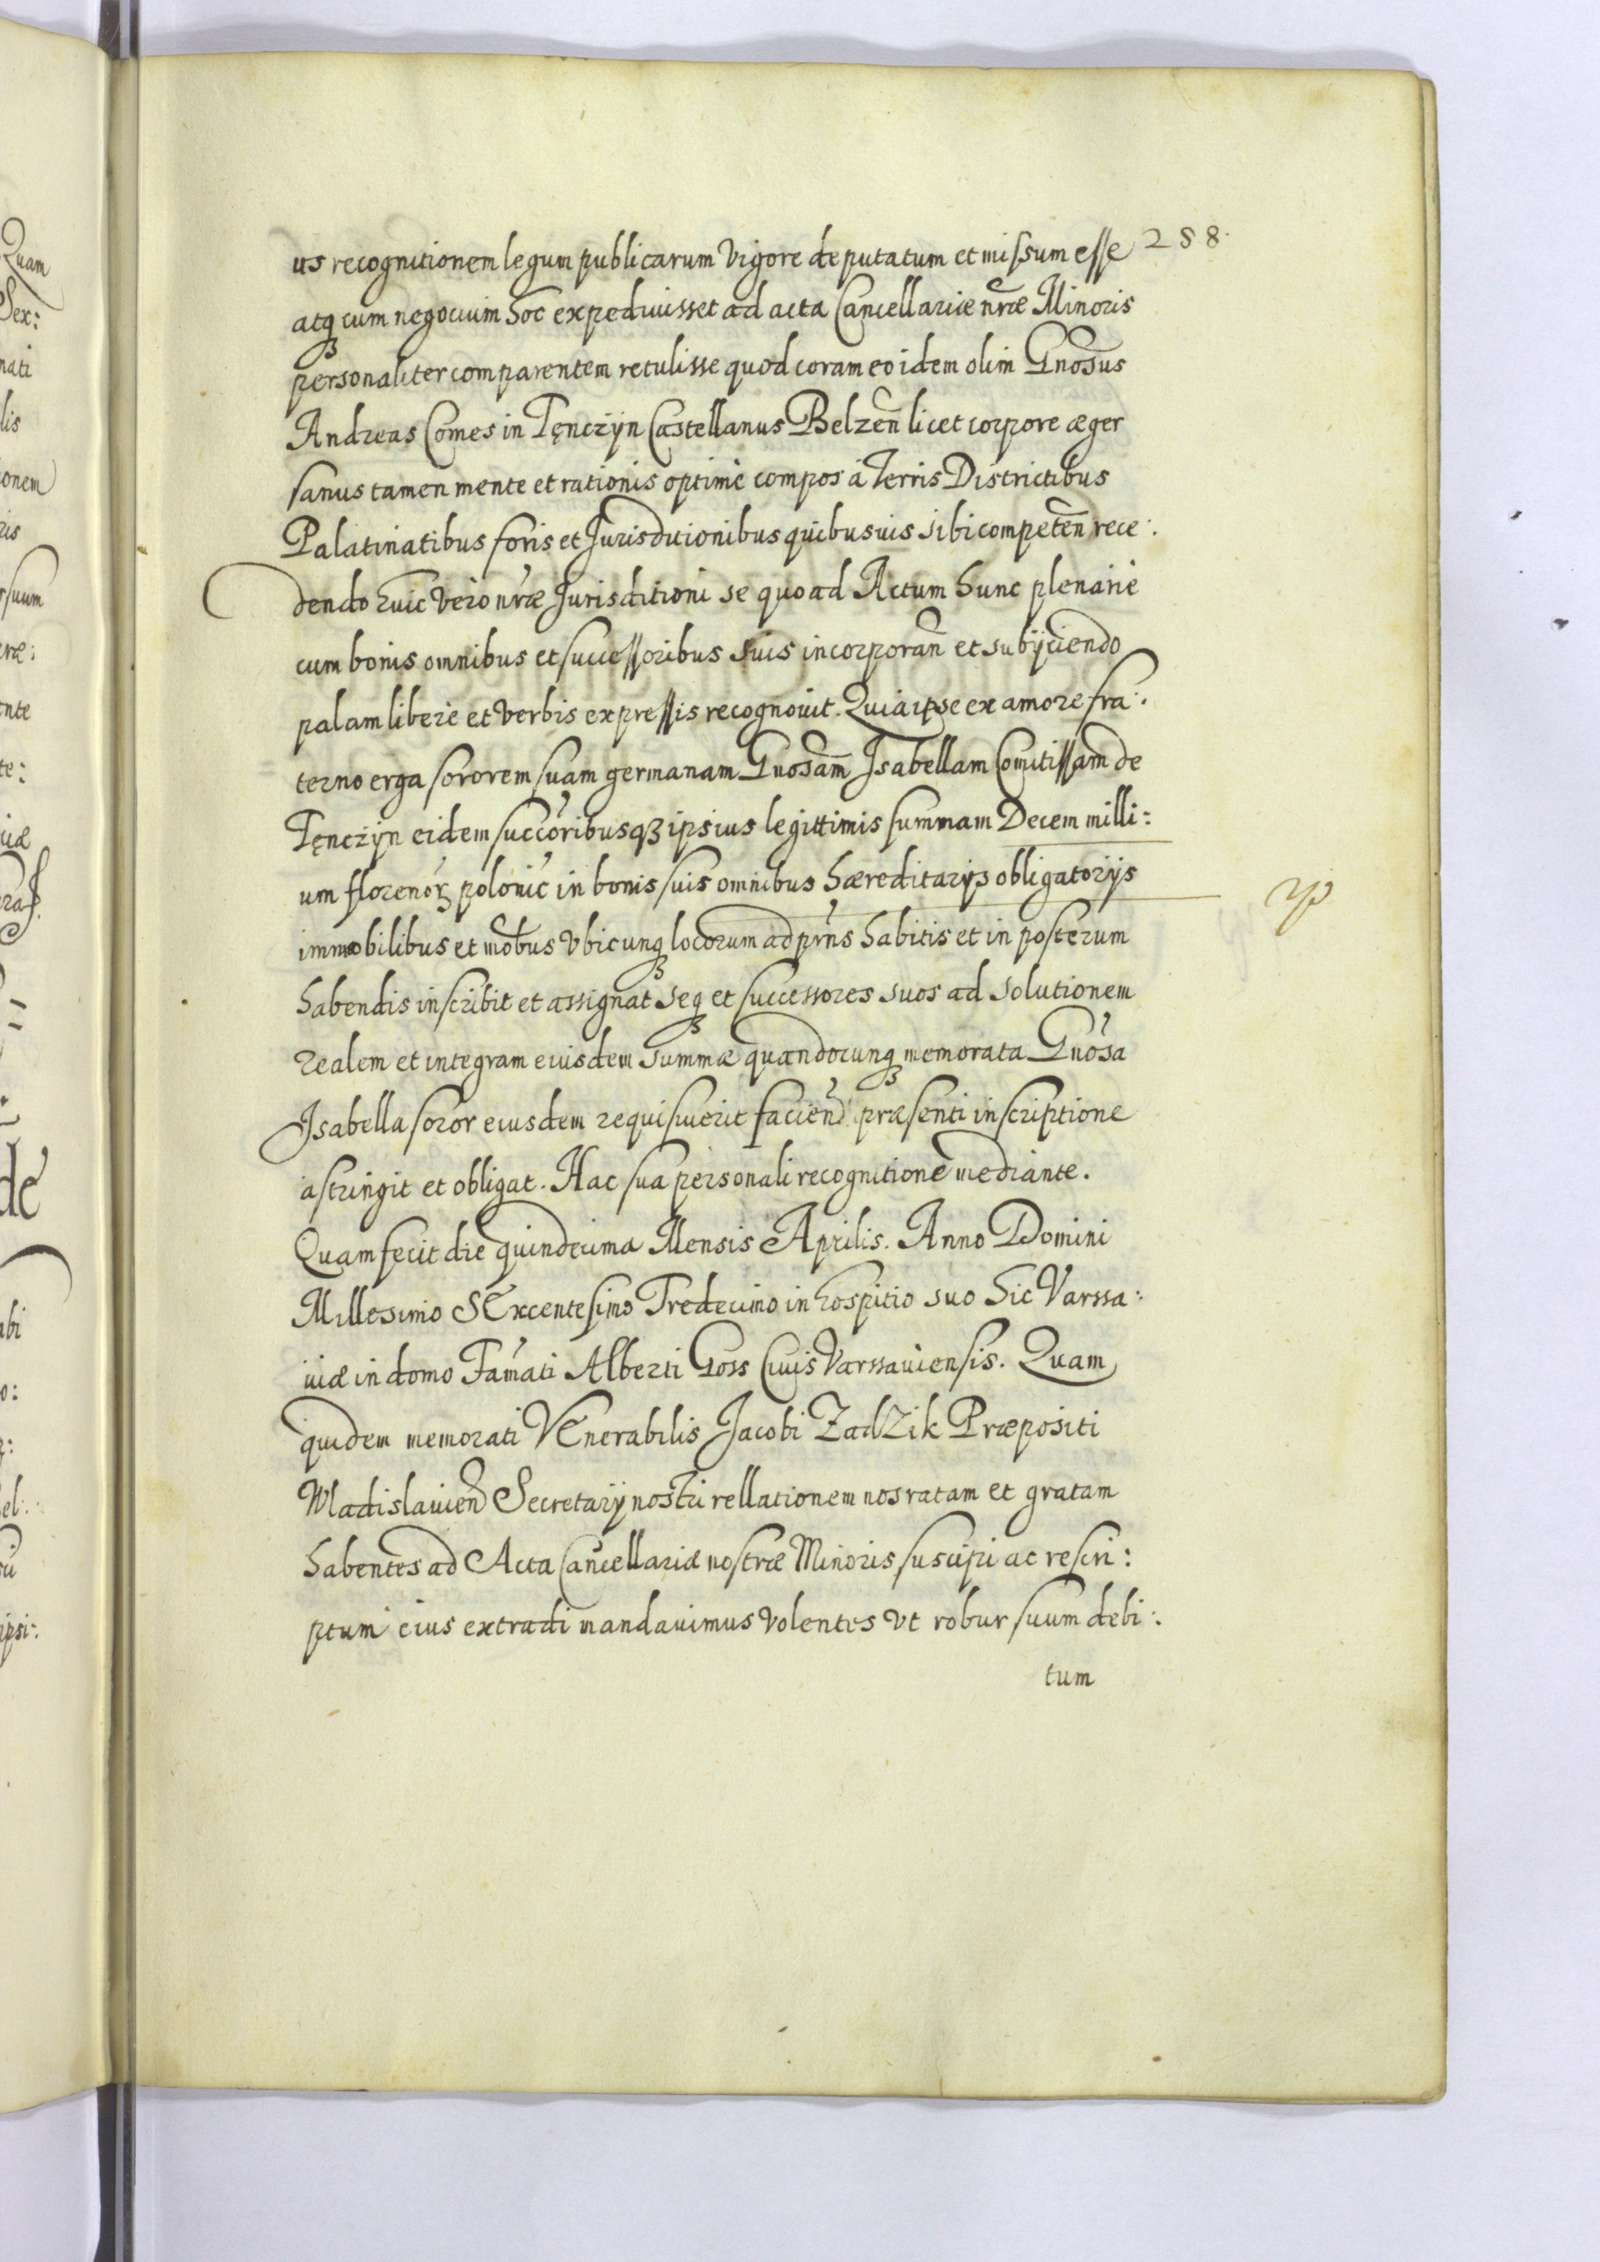 258.
us recognitionem legum publicarum vigore deputatum et missum esse
atq₃ cum negocium hoc expedivisset ad acta Cancellariæ nr̃æ Minoris
personaliter comparentem retulisse quod coram eo idem olim Gnosus
Andreas Comes in Tęnczÿn Castellanus Belzen̄ licet corpore æger
sanus tamen mente et rationis optimè compos à Terris Districtibus
Palatinatibus foris et Jurisdicionibus quibusuis sibi competen̄ rece:
dendo huic vero nr̃æ Jurisditioni se quo ad Actum hunc plenariè
cum bonis omnibus et successoribus suis incorporan̄ et subÿciendo
palam liberè et verbis expressis recognouit. Quia ipse ex amore fra:
terno erga sororem suam germanam Gnosam̄ Isabellam Comitissam de
Tęnczÿn eidem succoribusq₃ ipsius legittimis summam Decem milli:
um florenoꝝ polonic̄ in bonis suis omnibus hæreditarÿs obligatorÿs
immobilibus et mob̃bus vbicunq₃ locorum ad prñs habitis et in posterum
habendis inscribit et assignat seq₃ et successores suos ad solutionem
realem et integram eiusdem summæ quandocunq₃ memorata Gnosa
Isabella soror eiusdem requisiuerit facien̄d præsenti inscriptione
astringit et obligat. Hac sua personali recognitione mediante.
Quam fecit die quindecima Mensis Aprilis. Anno Domini
Millesimo SExcentesimo Tredecimo in hospitio suo hic Varssa:
uiæ in domo Famati Alberti Goss Ciuis Varssauiensis. Quam
quidem memorati VEnerabilis Jacobi Zadzik Præpositi
Wladislauien̄ Secretarÿ nostri rellationem nos ratam et gratam
habentes ad Acta Cancellariæ nostræ Minoris suscipi ac rescri:
ptum eius extradi mandauimus volentes vt robur suum debi:
tum